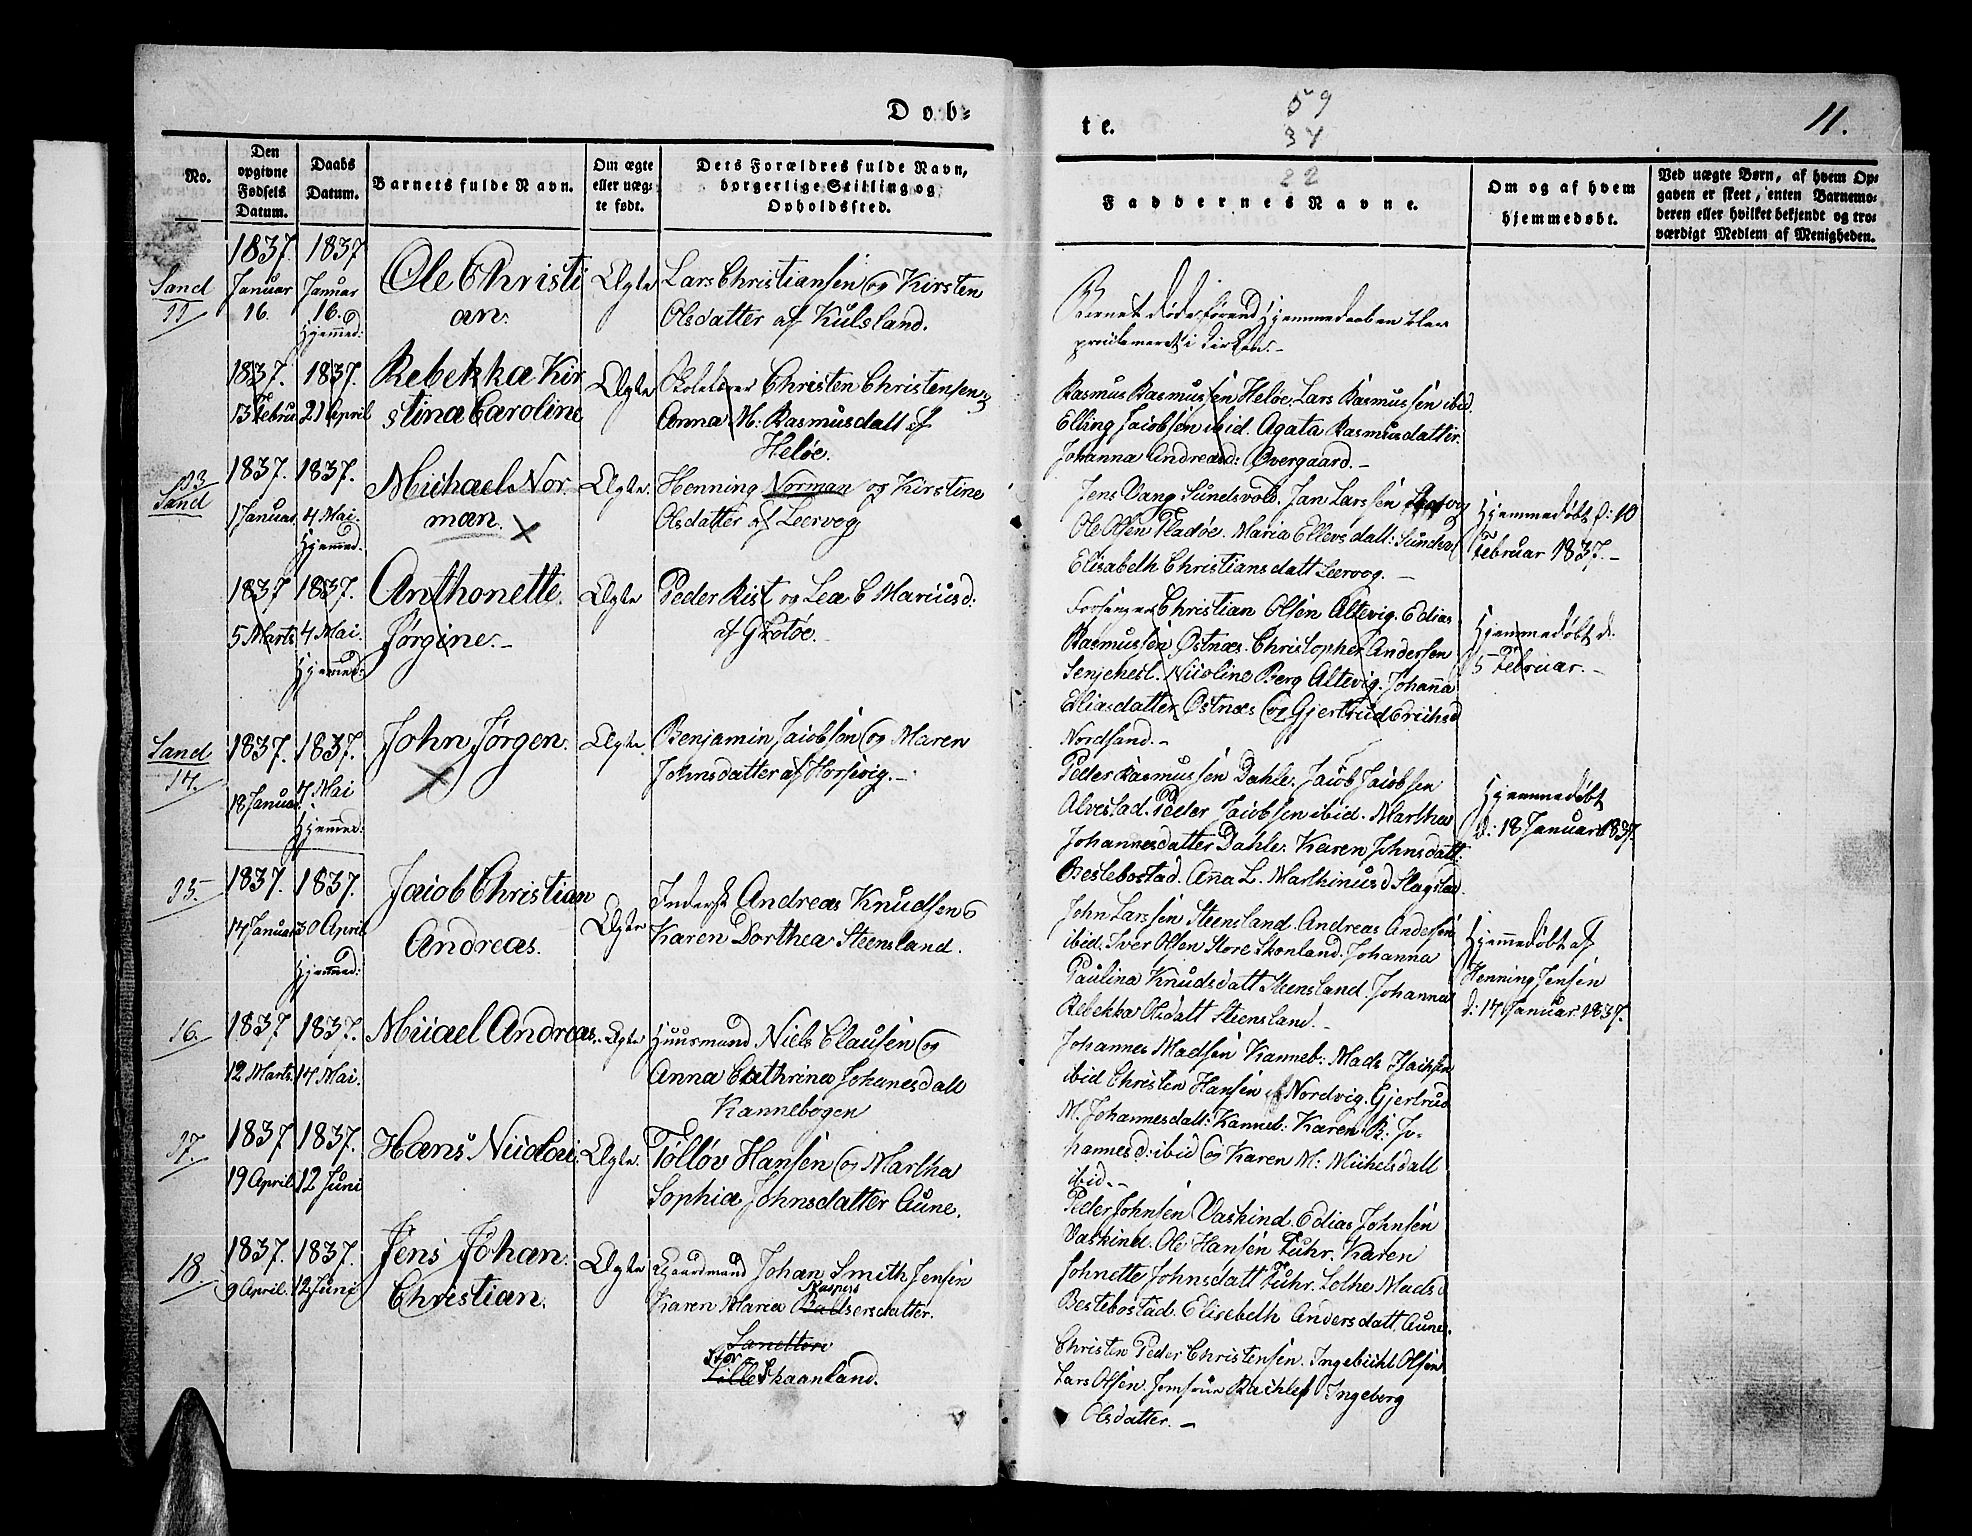 Døb-
No.
Den
opgivne
Fødsels
Datum.
Daabs
Datum.
Barnets fulde Navn.
Om ægte
eller uæg-
te født.
Dets Forældres fulde Navn,
borgerlige Stilling og
Opholdssted.
Sand
11
1837.
Januar
16.
1837
Januar
16.
Hjemmed:
Ole Christi
an.
Ægte
Lars Christiansen og Kirsten
Olsdatter af Kulsland.
1837.
13 Febru
1837.
21 April
Rebekka Kir
stina Caroline
Ægte
Skolelærer Christen Christensen og
Anna M: Rasmusdatt af
Heløe.
13
Sand
1837.
1 Januar
1837.
4 Mai.
Hjemmed.
Michael Nor
man.
Ægte.
Henning Norman og Kirstine
Olsdatter af Leervog
1837
5 Marts
1837.
4 Mai.
Hjemmed:
Anthonette
Jørgine.-
Ægte
Peder Rist og Lea C Mariusd:
af Grotøe.
Sand
14.
1837.
18 Januar.
1837.
7 Mai
Hjemmed:
John Jørgen.
Ægte.
Benjamin Jacobsen og Maren
Johnsdatter af Horsevig.-
15.
1837.
14 Januar
1837.
30 April
Hjemmed:
Jacob Christian
Andreas.
Ægte
Inderst Andreas Knudsen &
Karen Dorthea Steensland.
16.
1837
12 Marts.
1837.
14 Mai.
Micael Andreas.
Ægte
Huusmand Niels Clausen og
Anna Cathrina Johanesdatt
Kannebogen
17.
1837
19 April
1837.
12 Juni
Hans Nicolai.
Ægte.
Tølløv Hansen og Martha
Sophia Johnsdatter Aune.
18
1837.
9 April.
1837.
12 Juni
Jens Johan
Christian.
Ægte
Gaardmand Johan Smith Jensen
Kaspers
Karen Maria Baltsersdatter.
Sandtorv
Stor
Lille Skaanland.
te.
59
37
22
11.
Faddernes Navne.
Om og af hvem
hjemmedøbt.
Ved uægte Børn, af hvem Op-
gaven er skeet, enten Barnemo-
deren eller hvilket bekjendt og tro-
værdigt Medlem af Menigheden.
Barnet døde førend Hjemmedaaben blev
proclameret i Kirken.-
Rasmus Rasmussen Heløe. Lars Rasmussen ibid.
Elling Jacobsen ibid. Agata Rasmusdatter.
Johanna Andreasd: Øvergaard.-
Jens Vang Sundsvold. Jan Larssen
Ole Olsen Fladøe. Maria Ellevsdatt: Sundsv
Elisabeth Christiansdatt Leervog.-
Hjemmedøbt d: 10
Februar 1837.-
Forsanger Christian Olsen Altevig. Edias
Rasmussen Østnæs. Christopher Andersen
Senjehest. Nicoline Berg Altevig. Johanna
Eliasdatter Østnæs og Gjertrud Erichsd
Nordsand.-
Hjemmedøbt d.
5 Februar.-
Peder Rasmussen Dahle. Jacob Jacobsen
Alvestad. Peder Jacobsen ibid. Martha
Johannesdatter Dahle. Karen Johnsdatt:
Bestebostad. Anna L. Marthinusd Slagstad.
Hjemmedøbt
d: 18 Januar 1837.
John Larssen Steensland. Andreas Andersen
ibid. Iver Olsen Store Skonland. Johanna
Paulina Knudsdatt Steensland. Johanna
Rebekka Olsdatt Steensland.-
Hjemmedøbt af
Henning Jensen
d: 14 Januar 1837.
Johannes Madsen Kanneb: Mads Isachsen
ibid Christen Hansen af Nordvig. Gjertrud
M. Johannesdatt: Kanneb: Karen B: Jo-
hannesd: ibid og Karen M: Michelsdatt
ibid.-
Peder Johnsen Vaskind. Edias Johnsen
Vaskind. Ole Hansen Fuhr. Karen
Johnette Johnsdatt Fuhr. Lothe Madsd
Bestebostad. Elisabeth Andersdatt. Aune.
Christen Peder Christensen. Ingebricht Olsen
Lars Olsen. Jomfrue Rachlef Ingeborg
Olsdatter.-